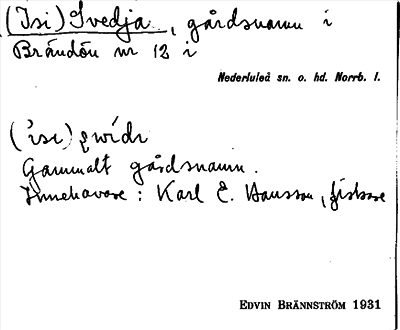 (Isi) Svedja, gårdsnamn i
Brändön nr 12 i
Nederluleå sn. o. hd. Norrb. l.
Gammalt gårdsnamn.
Innehavare : Karl E. Hansson, fiskare
EDVIN BRÄNNSTRÖM 1931